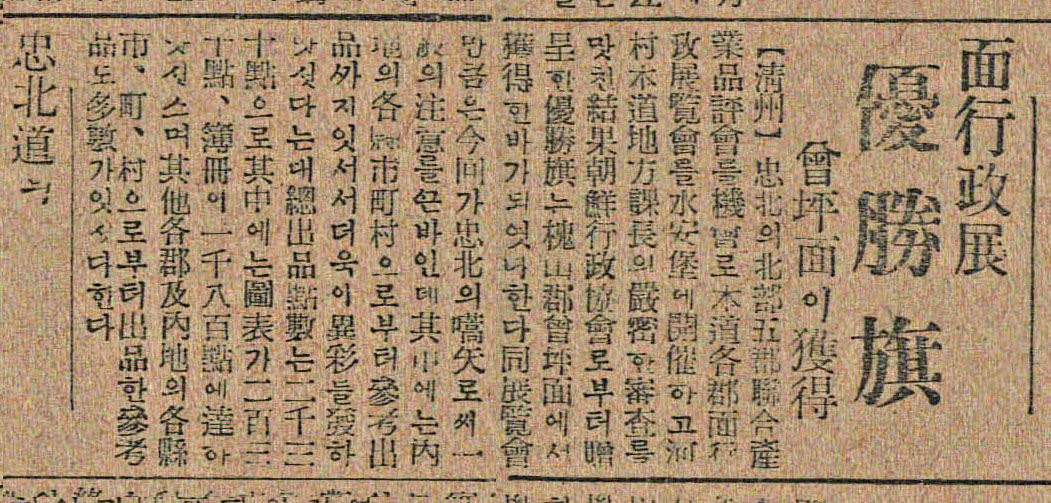 面行政展
優勝旗
曾坪面이獲得
【淸州】忠北의北部五郡聯合產
業品評會를機會로本道各郡面行
政展覽會를水安堡에開催하고河
村本道地方課長의嚴密한審査를
맛친結果朝鮮行政協會로부터贈
呈한優勝旗느槐山郡曾坪面에서
獲得한바가되엿다한다同展覽會
만큼은今回가忠北의嚆矢로써一
般의注意를끈바인데其中에는內
地의各縣市町村으로부터參考出
品까지잇서서더욱이異彩를發하
얏섯다는대總出品點數는二千三
十點으로其中에는圖表가二百三
十點、簿冊이一千八百點에達하
얏섯스며其他各郡及內地의各縣
市、町、村으로부터出品한參考
品도多數가잇섯다한다
忠北道의